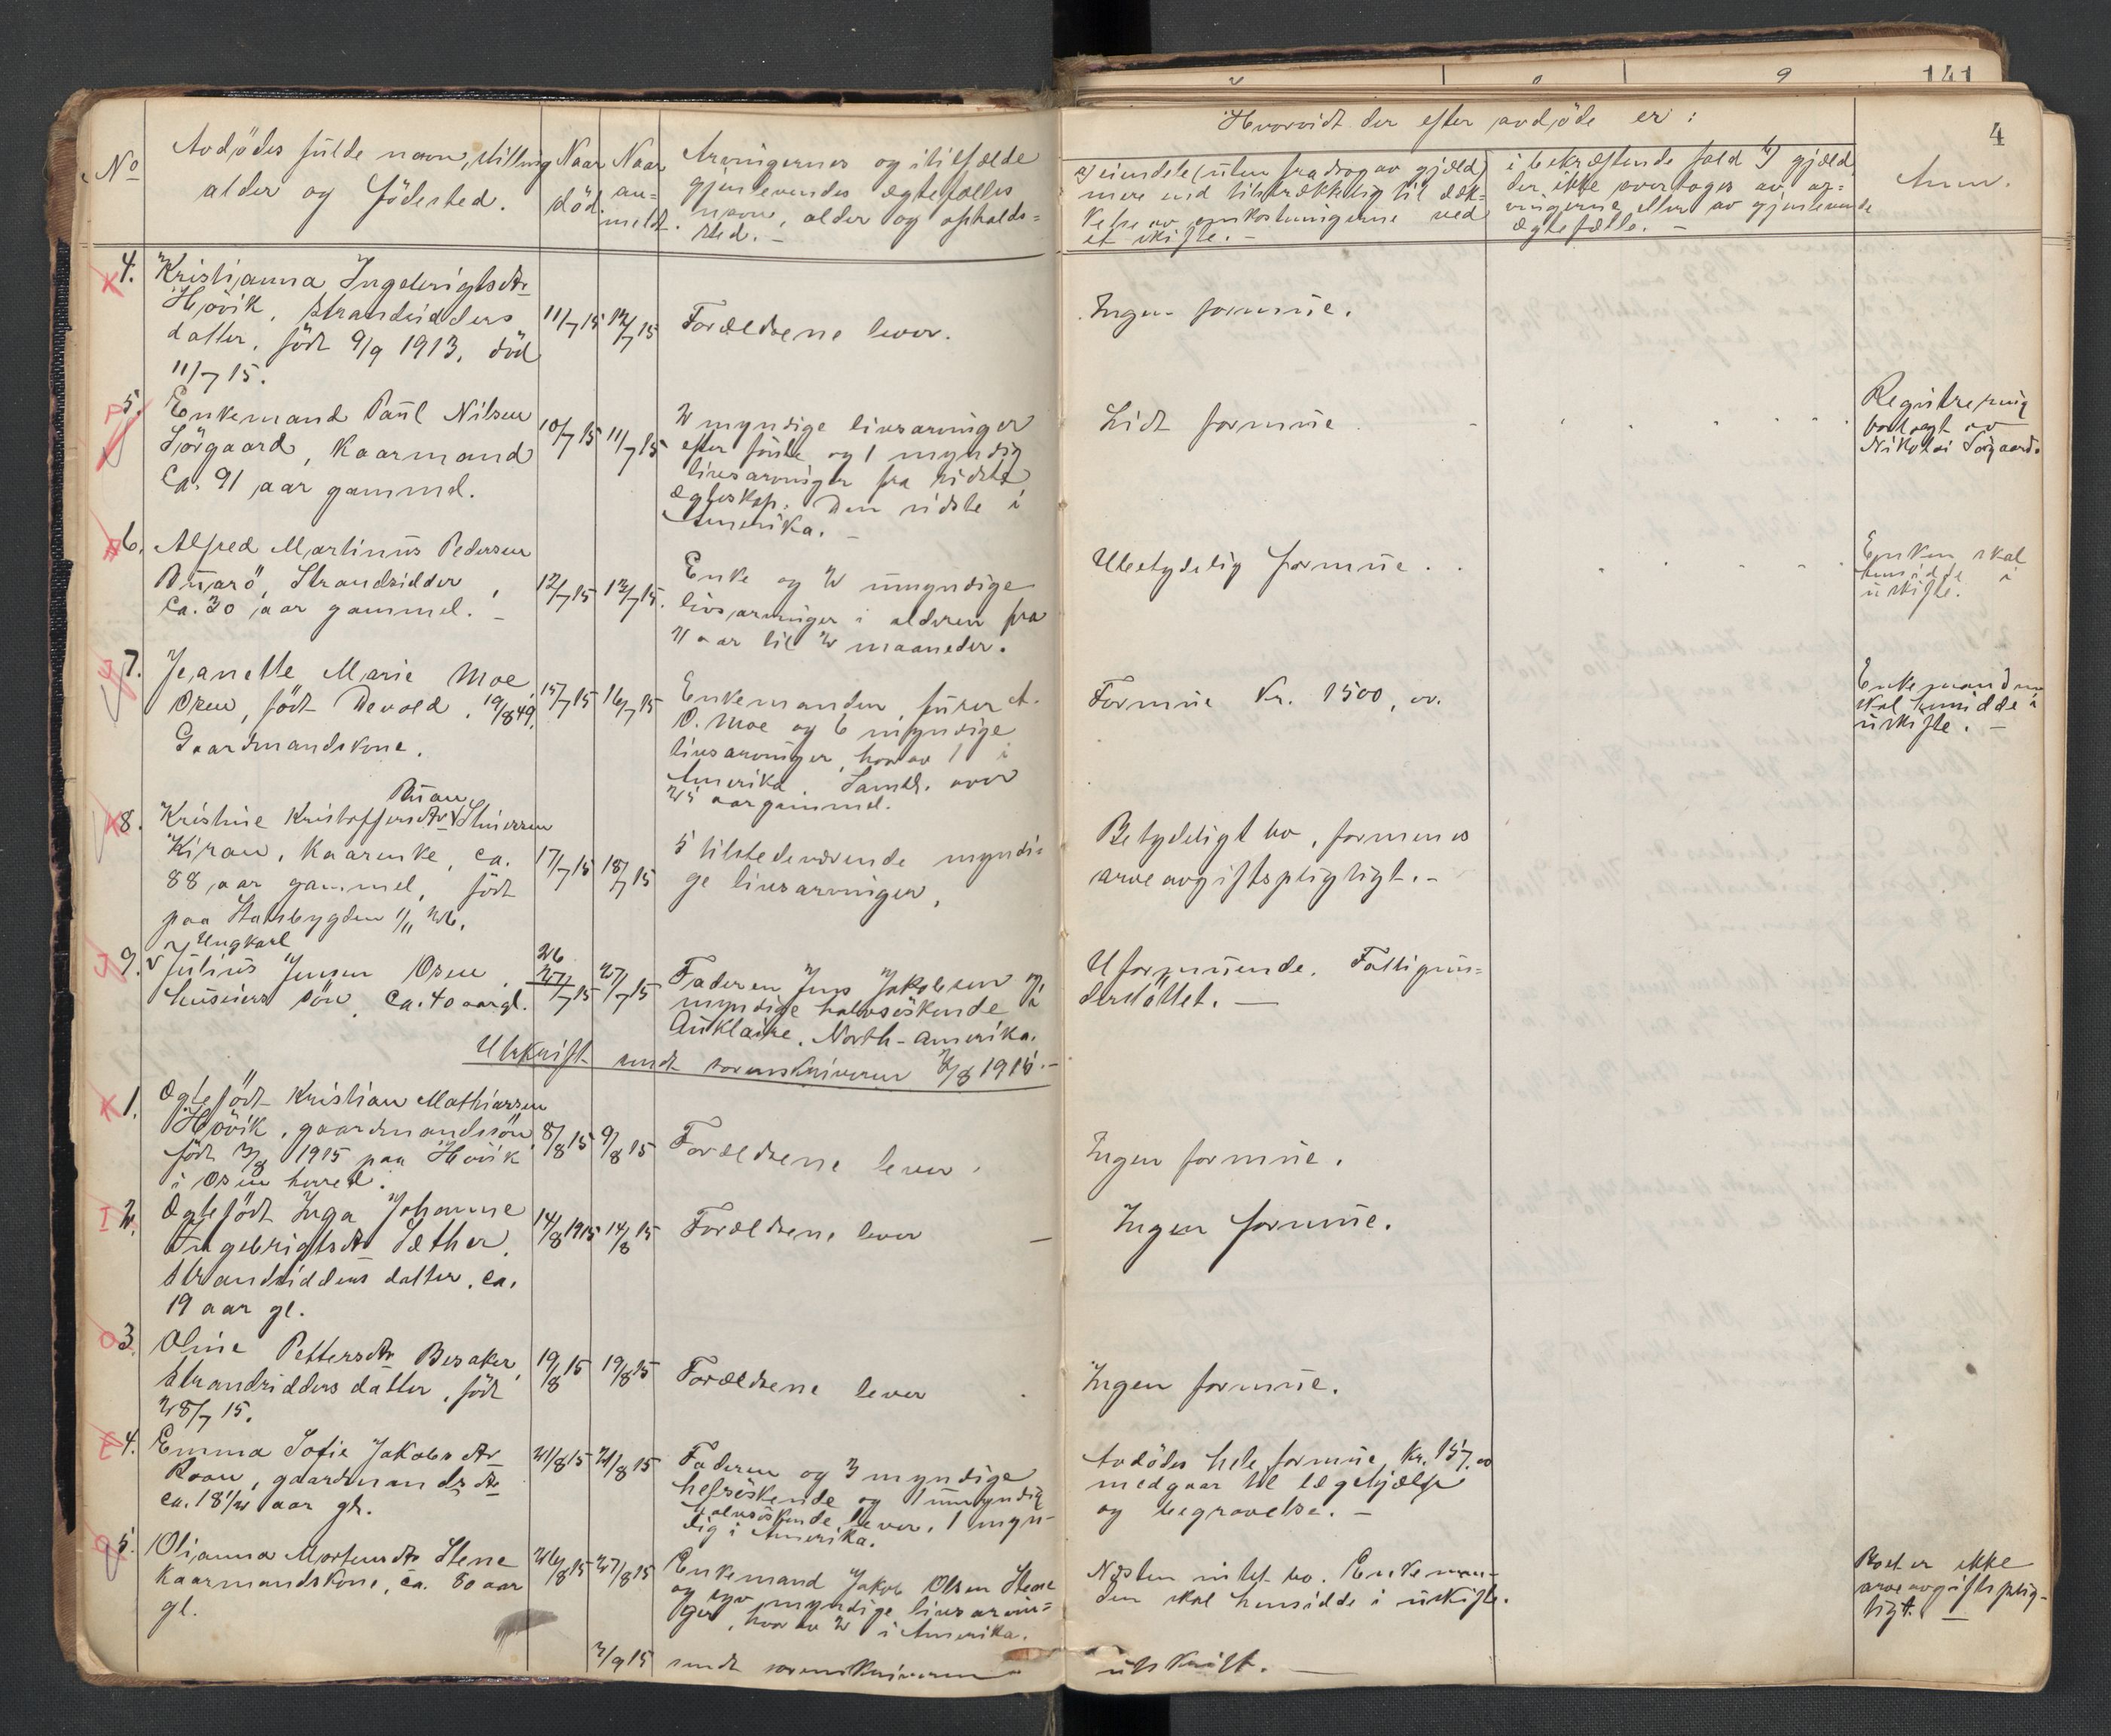 141
4
No
Avdødes fulde navn, stilling
alder og fødested.
Naar
død
Naar
an=
meldt.
Arvingernes og i tilfælde
gjenlevendes ægtefælles
navn, alder og opholds=
sted. -
Hvorvidt der efter avdøde er:
a) eiendele (uten fradrag av gjæld)
mere end tilstrækkelig til dæk-
kelse av omkostningerne ved
et skifte. -
i bekræftende fald b) gjæld
der ikke overtages av ar=
vingerne eller av gjenlevende
ægtefælle. -
Anm.
4. Kristianna Ingebrigtsdtr
Hövik, strandsidders
datter, födt 9/9 1913, död
11/7 15.
11/7 15
12/7 15
Forældrene lever.
Ingen formue.
5. Enkemand Paul Nilsen
Sörgaard, Kaarmand
Ca. 91 aar gammel.
10/7 15
11/7 15
2 myndige livsarvinger
efter förste og 1 myndig
livsarvinger fra sidste
ægteskap. Den sidste i
Amerika. -
Lidt formue
Registrering
foretagt av
Nikolai Sörgaard.
6. Alfred Martinus Pedersen
Buarö, Strandsidder,
Ca. 30 aar gammel. -
12/7 15
13/7 15.
Enke og 2 umyndige
livsarvinger i alderen fra
2 aar til 2 maaneder.
Ubetydelig formue.
Enken skal
hensidde i
uskifte.
7. Jeanette Marie Moe,
Osen, födt Devold 19/8 49,
Gaardmandskone.
15/7 15
16/7 15
Enkemanden, furer A.
O. Moe og 6 myndige
livsarvinger, hvorav 1 i
Amerika. Samtl. over
25 aar gammel.
Formue Kr. 1500,oo.
Enkemanden
skal hensidde i
uskifte. -
Buan
8. Kristine Kristoffersdtr Steinsen
Kiran, Kaarenke, ca.
88 aar gammel, födt
paa Stambygden 1/11 26.
17/7 15
18/7 15
5 tilstedeværende myndi=
ge livsarvinger,
Betydeligt bo, formenes
arveavgiftspligtigt. -
Ungkarl
9. Julius Jensen Osen
husmers sön, ca. 40 aar gl.
26
27/7 15
27/7 15
Faderen Jens Jakobsen og
myndige halvsöskende i
Auklaire, North-Amerika.
Uformuende. Fattigun=
derstöttet. -
Utskrift sendt sorenskriveren 2/8 1915. -
1. Ogtefödt Kristian Mathiassen
Hövik, gaardmandssön,
födt 3/8 1915 paa Hövik
i Osen herred.
8/8 15
9/8 15
Forældrene lever.
Ingen formue.
2. Ogtefödt Inga Johanne
Ingebrigtsdtr Sæther,
strandsidders datter, ca.
19 aar gl.
14/8 1915
14/8 15
Forældrene lever -
Ingen formue.
3. Oline Pettersdtr Besaker,
strandsidders datter, födt
28/7 15.
19/8 15
19/8 15
Forældrene lever
Ingen formue.
4. Emma Sofie Jakobsdtr
Roan, gaardmandsdtr
ca. 18 1/2 aar gl.
21/8 15
21/8 15
Faderen og 3 myndige
helsöskende og 1 umyndig
halvsöskende lever, 1 myn-
dig i Amerika.
Avdödes hele formue, Kr. 157.oo
medgaar til lægehjælp
og begravelse. -
5. Olianna Mortensdtr Stene
Kaarmandskone, ca. 80 aar
gl.
26/8 15
27/8 15
Enkemand Jakob Olsen Stene
og syv myndige livsarvin=
ger, hvorav 2 i Amerika.
Næsten intet bo. Enkeman-
den skal hensidde i uskifte.
Boet er ikke
arveavgiftsplig-
tigt. -
3/9 15 sendt sorenskriveren utskrift. -